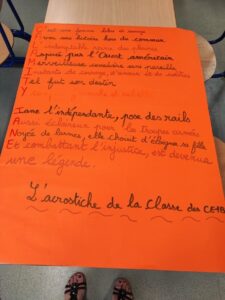 C'est une femme libre et sauvage
une histoire hors du commun
L'indomptable reine des plaines
par l'Ouest américain
Merveilleuse cavalière sans pareille
Instants de courage, d'amour et de
Tel fut son destin
Y
Jane l'indépendante, pose des rails
Aussi éclaireur pour les troupes armées
Noyée de larmes, elle choisit d'éloigner sa fille
Et combattant l'injustice, est devenue
une légende.
L'acrostiche de la Classe des